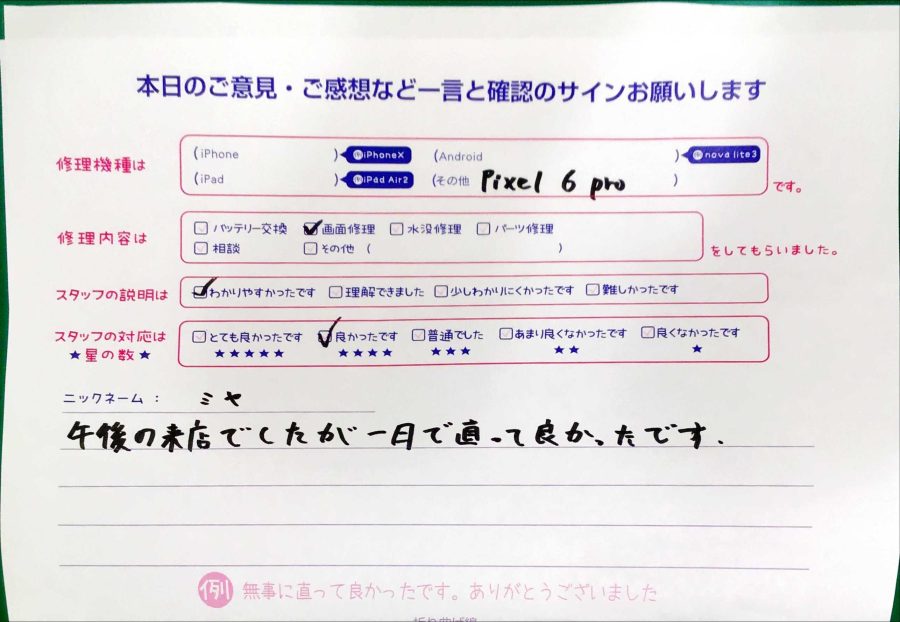 本日のご意見・ご感想など一言と確認のサインお願いします
修理機種は
(iPhone ) iPhoneX (Android ) nova lite3
(iPad ) iPad Air2 (その他 Pixel 6 pro )
です。
修理内容は
バッテリー交換 画面修理 水没修理 パーツ修理
相談 その他 ( )
をしてもらいました。
スタッフの説明は
わかりやすかったです 理解できました 少しわかりにくかったです 難しかったです
スタッフの対応は
★星の数★
とても良かったです 良かったです 普通でした あまり良くなかったです 良くなかったです
★★★★★ ★★★★ ★★★ ★★ ★
ニックネーム： ミヤ
午後の来店でしたが一日で直って良かったです.
例 無事に直って良かったです。ありがとうございました